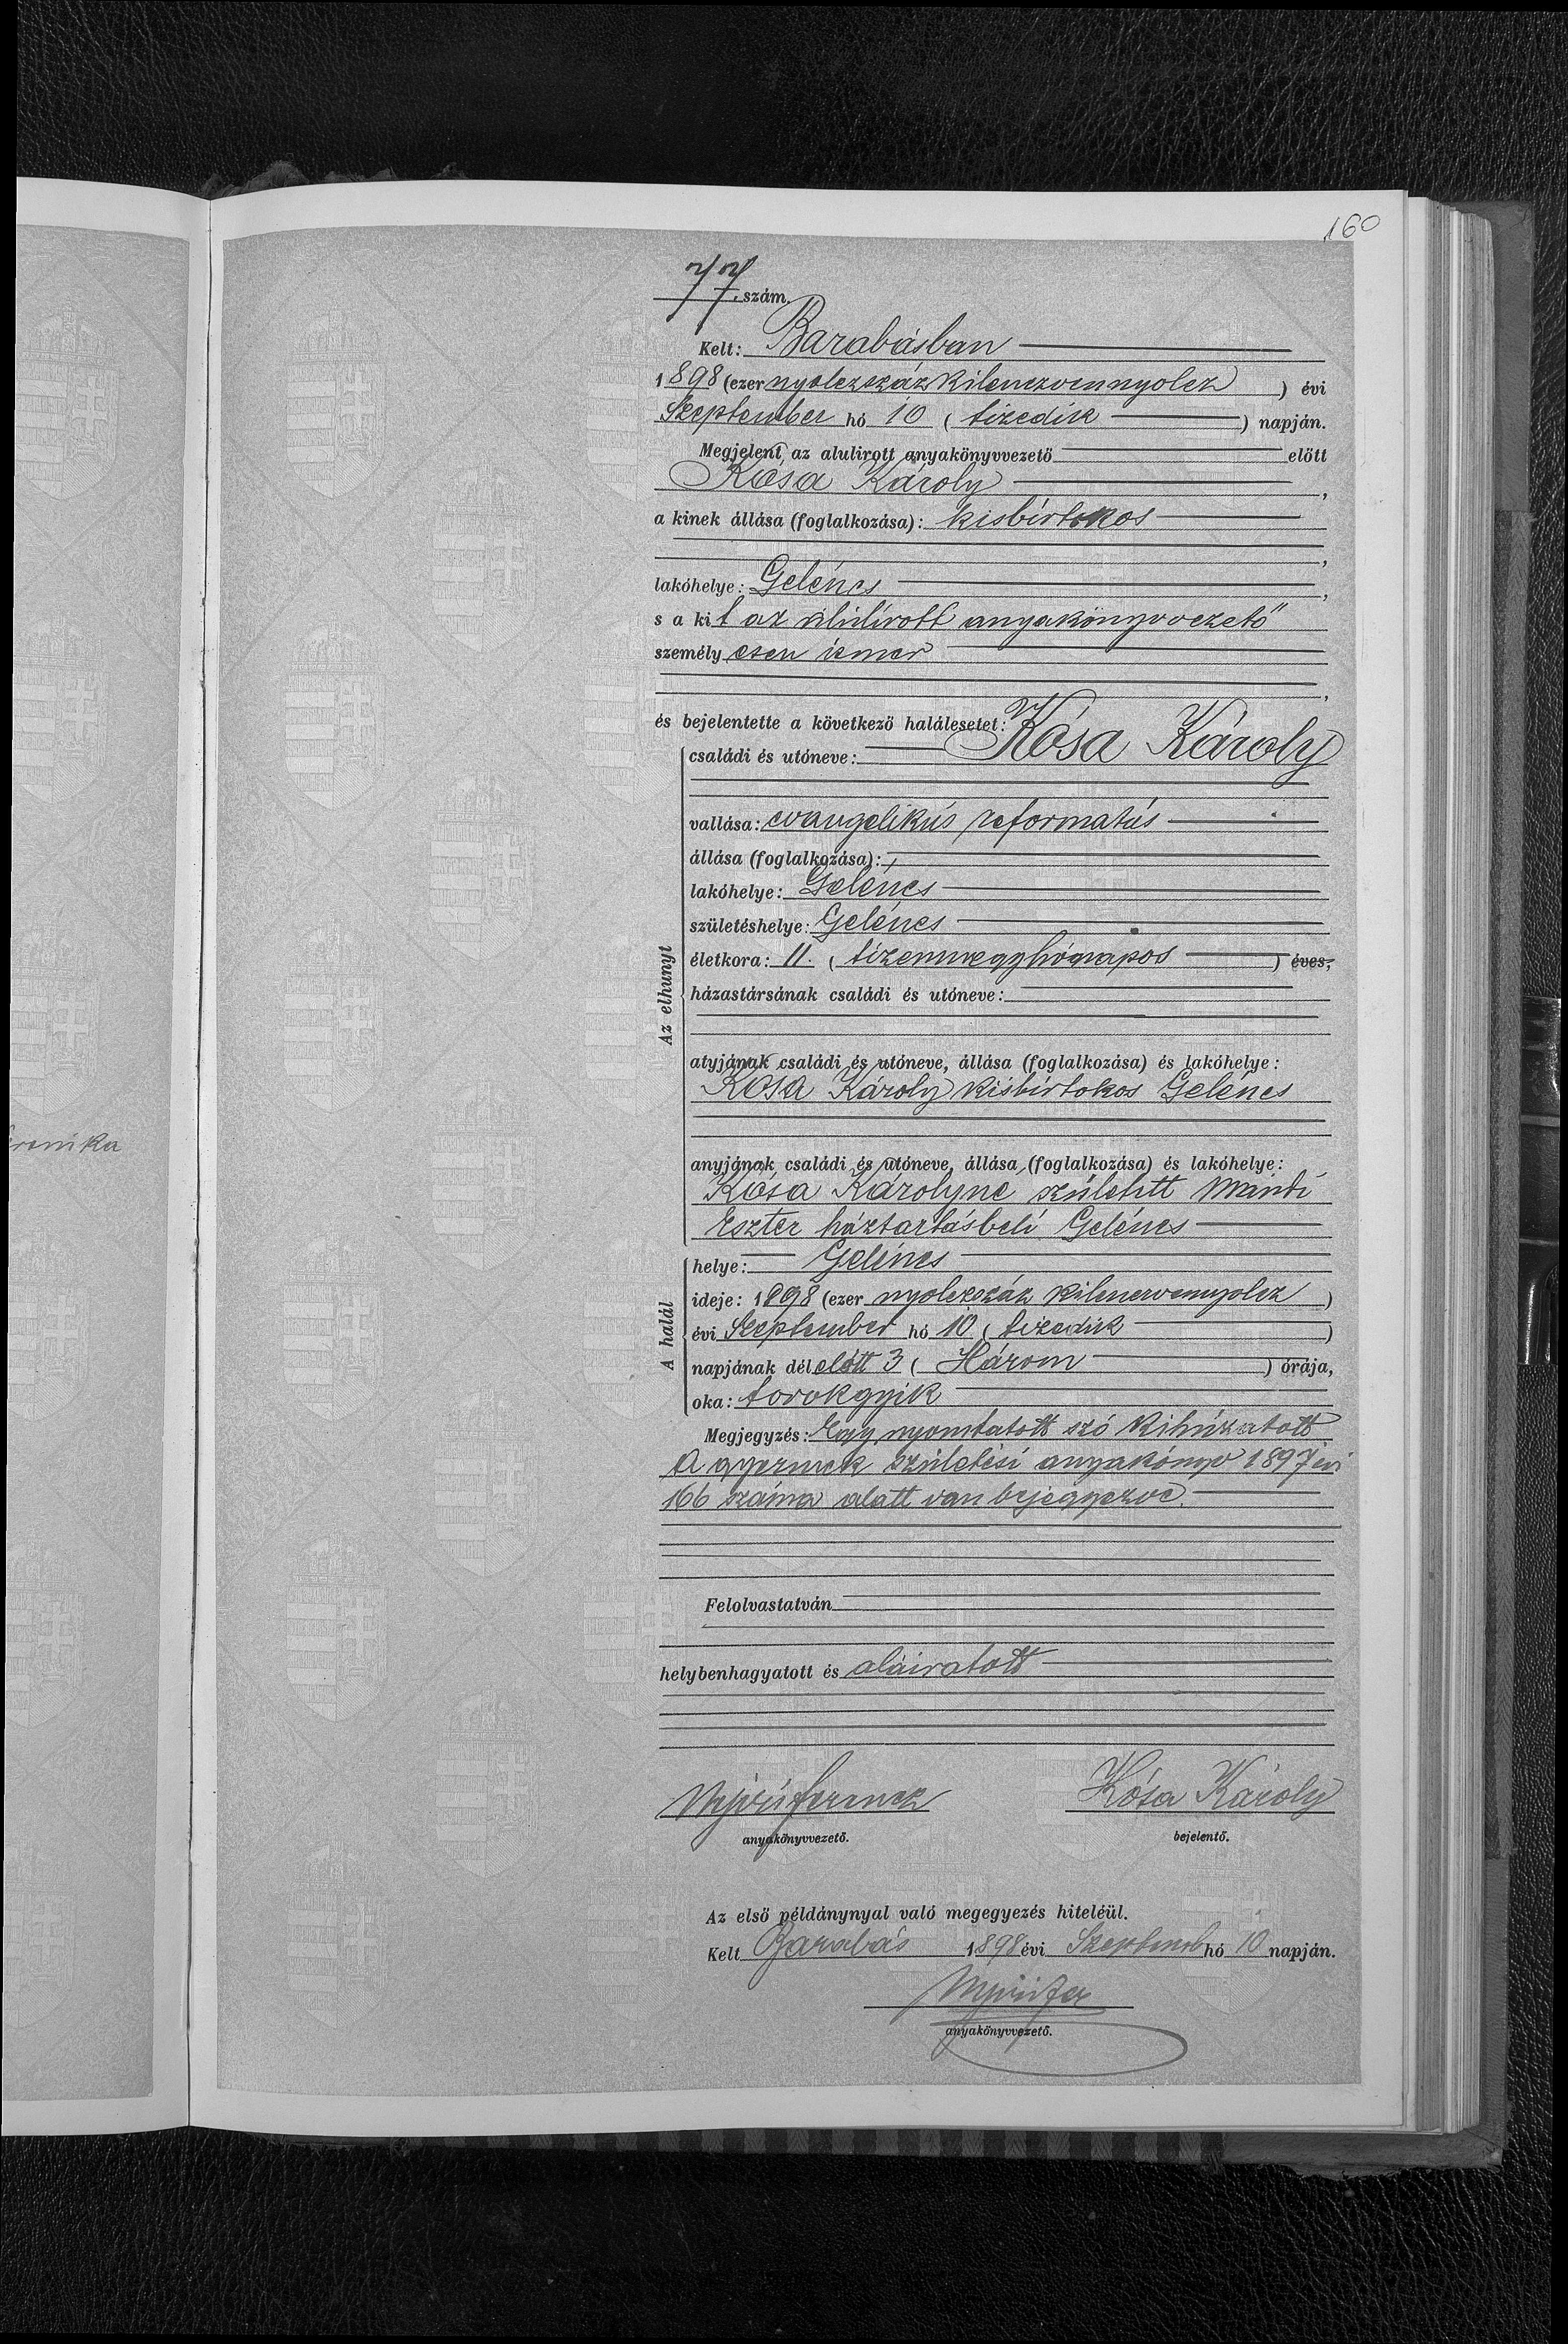 160
77. szám.
Kelt: Barabásban
1898 (ezer nyolczszázkilenczvennyolcz) évi
Szeptember hó 10 (tizedik) napján.
Megjelent az alulirott anyakönyvvezető előtt
Kósa Károly,
a kinek állása (foglalkozása): kisbirtokos
,
lakóhelye: Geléncs,
s a kit az alulírott anyakönyvvezető
személyesen ismer
,
és bejelentette a következő halálesetet:
Az elhunyt
családi és utóneve: Kósa Károly
vallása: evangelikus református
állása (foglalkozása):
lakóhelye: Geléncs
születéshelye: Geléncs
életkora: 11. (tizennegyhónapos) éves,
házastársának családi és utóneve:
atyjának családi és utóneve, állása (foglalkozása) és lakóhelye:
Kósa Károly kisbirtokos Geléncs
anyjának családi és utóneve, állása (foglalkozása) és lakóhelye:
Kósa Károlyné született Mándi
Eszter háztartásbeli Geléncs
A halál
helye: Geléncs
ideje: 1898 (ezer nyolczszáz kilenczvennyolcz)
évi Szeptember hó 10 (tizedik)
napjának délelőtt 3 (Három) órája,
oka: torokgyik
Megjegyzés: Egy nyomtatott szó kihúzatott
A gyermek születési anyakönyv 1897 évi
166 száma alatt van bejegyezve.
Felolvastatván
helybenhagyatott és aláiratott
Kósa Károly
anyakönyvvezető. bejelentő.
Az első példánynyal való megegyezés hiteléül.
Kelt Barabás 1898 évi Szeptemb hó 10 napján.
anyakönyvvezető.